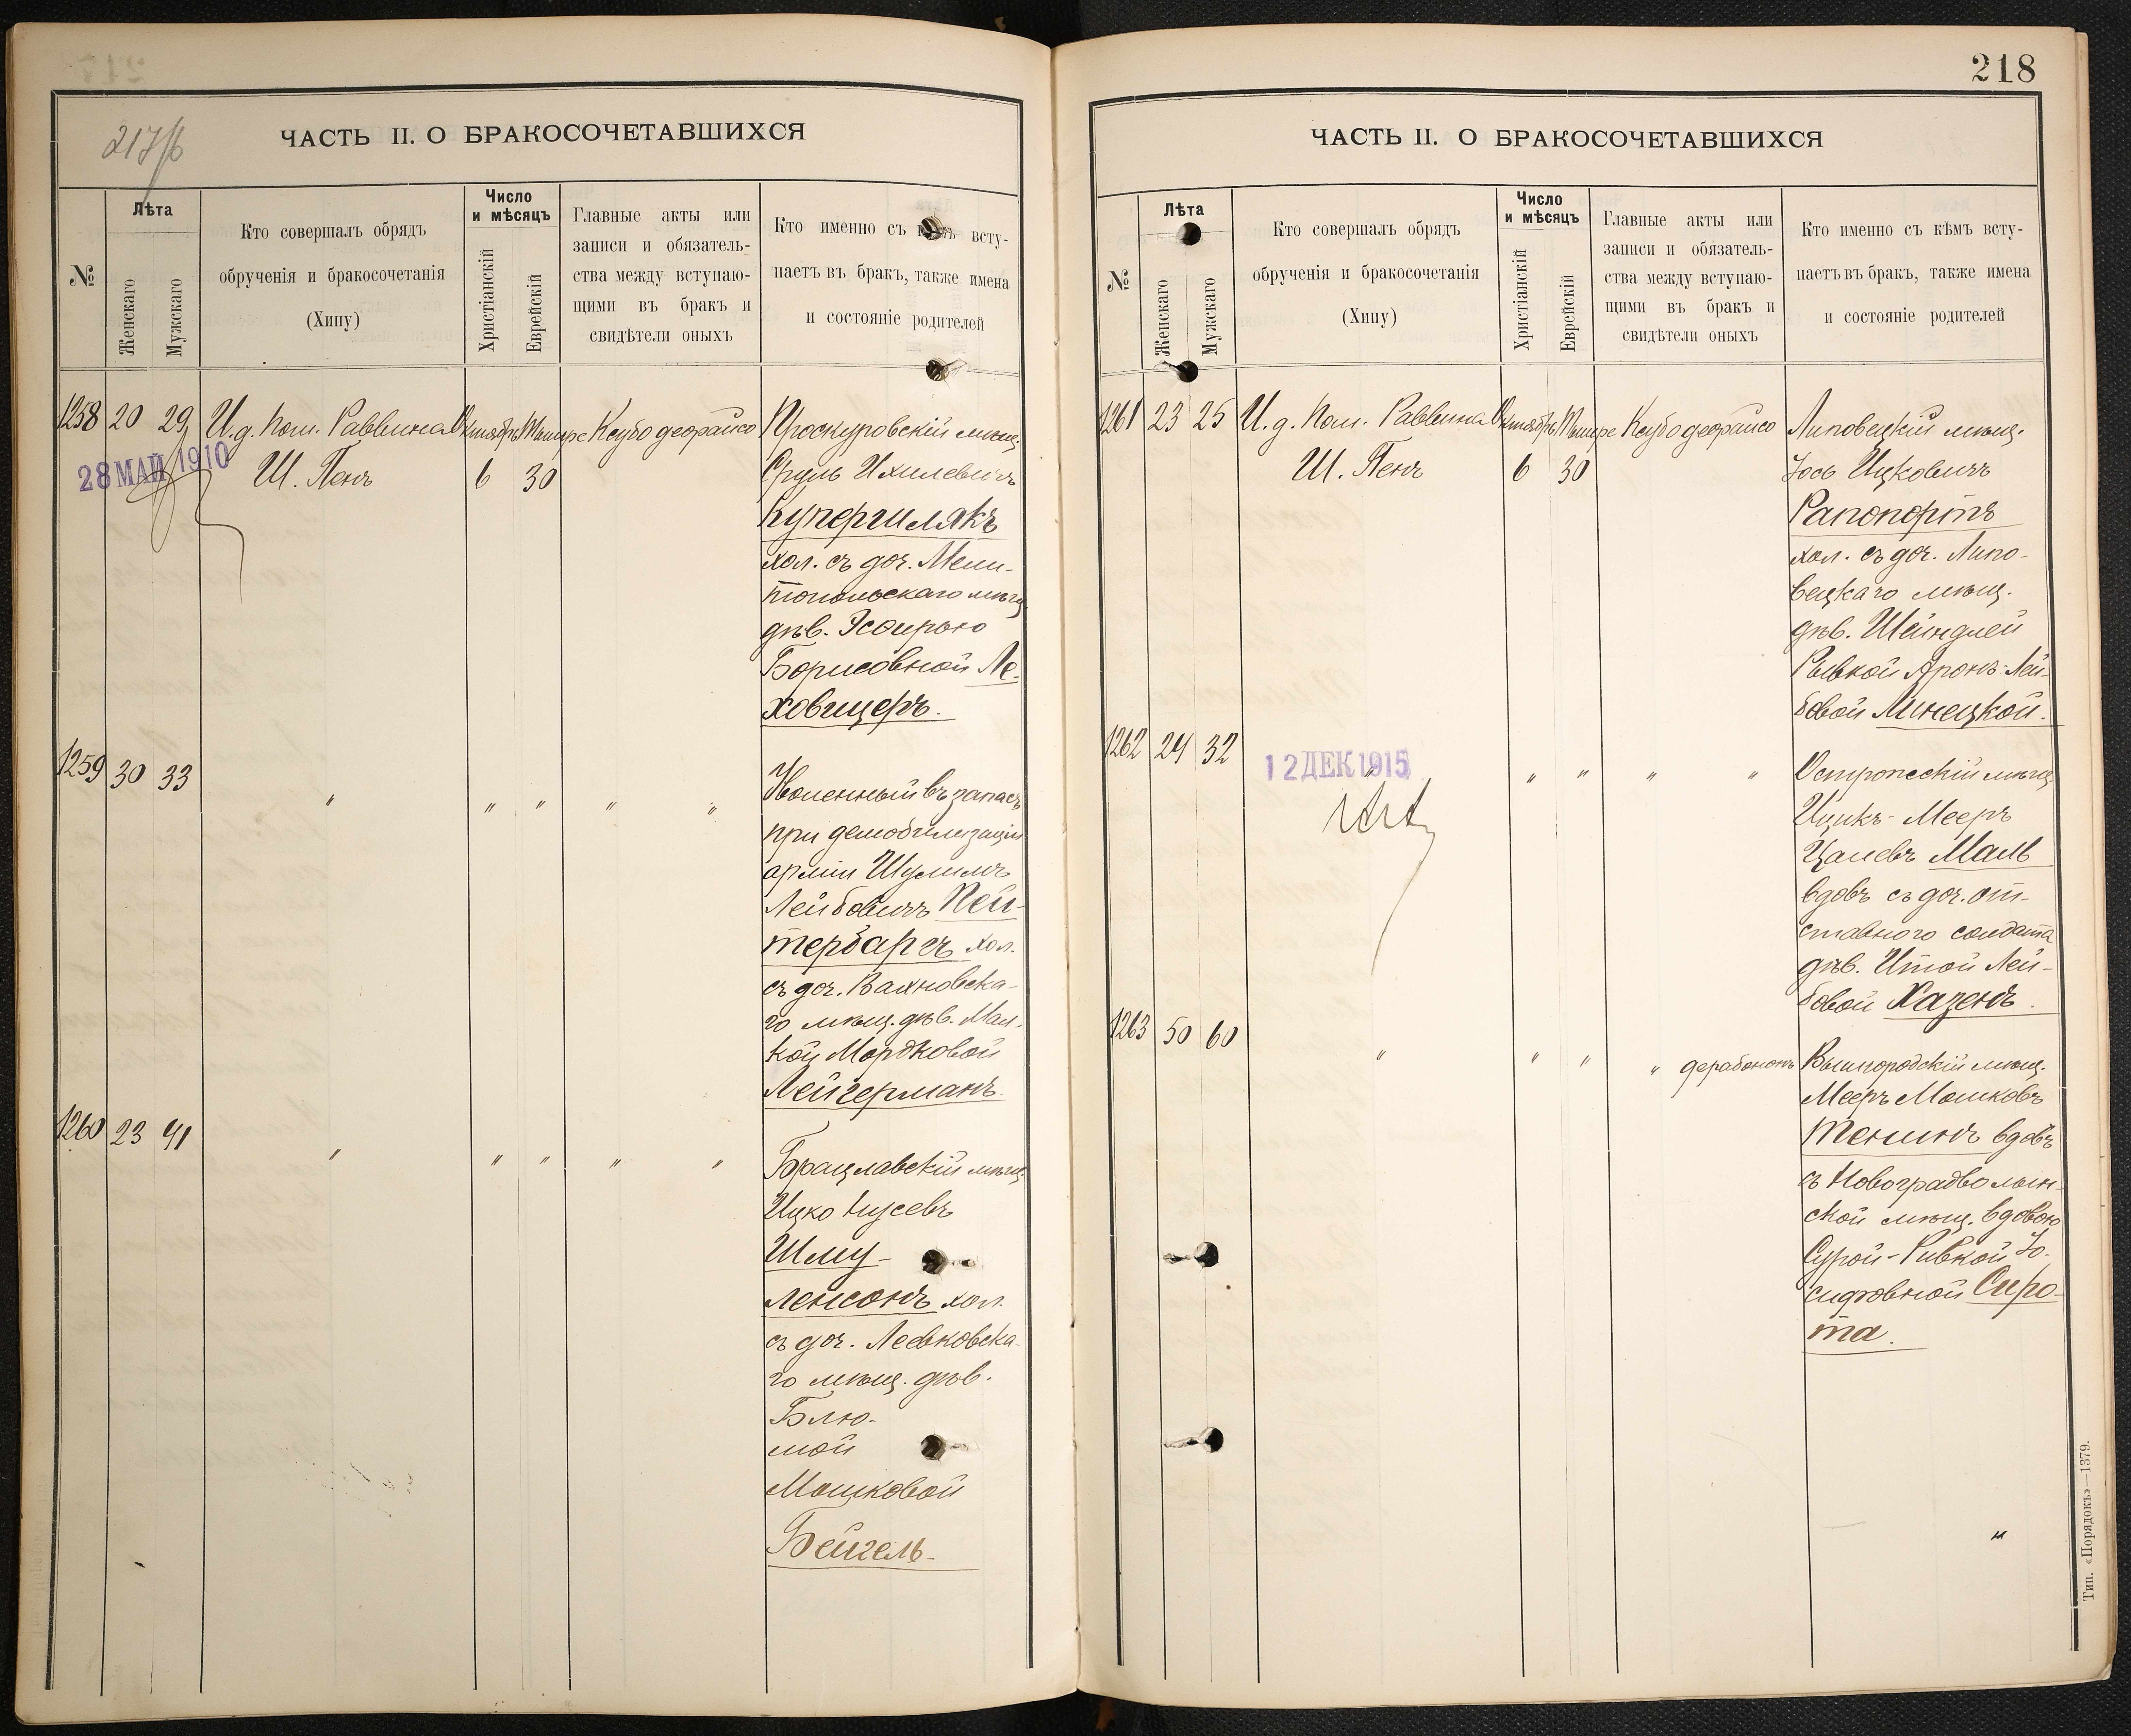 217/б
ЧАСТЬ II. О БРАКОСОЧЕТАВШИХСЯ
№
Лѣта
Женскаго
Мужскаго
Кто совершалъ обрядъ
обрученія и бракосочетанія
(Хипу)
Число
и мѣсяцъ
Христіанскій
Еврейскій
Главные акты или
записи и обязатель-
ства между вступаю-
щими въ бракъ и
свидѣтели оныхъ
Кто именно съ кѣмъ всту-
паетъ въ бракъ, также имена
и состояніе родителей
1258 20 29 И.д. Пом. Раввина Октября Тишре Ксубо деорайсо Проскуровскій мѣщ.
28 МАЙ 1910
Ш. Пенъ 6 30 Сруль Ихилевичъ
Купершлякъ
хол. съ доч. Мели-
топольскаго мѣщ.
дѣв. Эсѳирью
Борисовной Ле-
ховицеръ.
1259 30 33 " " " " " Уволенный въ запасъ
при демобилизаціи
арміи Шулимъ
Лейбовичъ Пей-
тербаргъ хол.
съ доч. Вахновска-
го мѣщ. дѣв. Мал-
кой Мордковой
Лейчерманъ.
1260 23 41 " " " " " Брацлавскій мѣщ.
Ицко Нусевъ
Шму-
ленсонъ хол.
съ доч. Левковска-
го мѣщ. дѣв.
Блю-
мой
Мошковой
Бейгель.
218
ЧАСТЬ II. О БРАКОСОЧЕТАВШИХСЯ
№
Лѣта
Женскаго
Мужскаго
Кто совершалъ обрядъ
обрученія и бракосочетанія
(Хипу)
Число
и мѣсяцъ
Христіанскій
Еврейскій
Главные акты или
записи и обязатель-
ства между вступаю-
щими въ бракъ и
свидѣтели оныхъ
Кто именно съ кѣмъ всту-
паетъ въ бракъ, также имена
и состояніе родителей
1261 23 25 И.д. Пом. Раввина Октября Тишре Ксубо деорайсо Липовецкій мѣщ.
Ш. Пенъ 6 30 Іось Ицковичъ
Рапопортъ
хол. съ доч. Липо-
вецкаго мѣщ.
дѣв. Шейндлей
Рывкой Аронъ-Лей-
бовой Линецкой.
1262 24 32 " " " " " Остропескій мѣщ.
12 ДЕК 1915
Ицикъ-Мееръ
Цалевъ Маль
вдовъ съ доч. от-
ставного солдата
дѣв. Итой Лей-
бовой Хазенъ.
1263 50 60 " " " " дерабононъ Вышгородскій мѣщ.
Мееръ Мошковъ
Тенинъ вдовъ
съ Новоградволын-
ской мѣщ. вдовою
Сурой-Ривкой Іо-
сифовной Сиро-
та.
Тип. «Порядокъ»—1379.